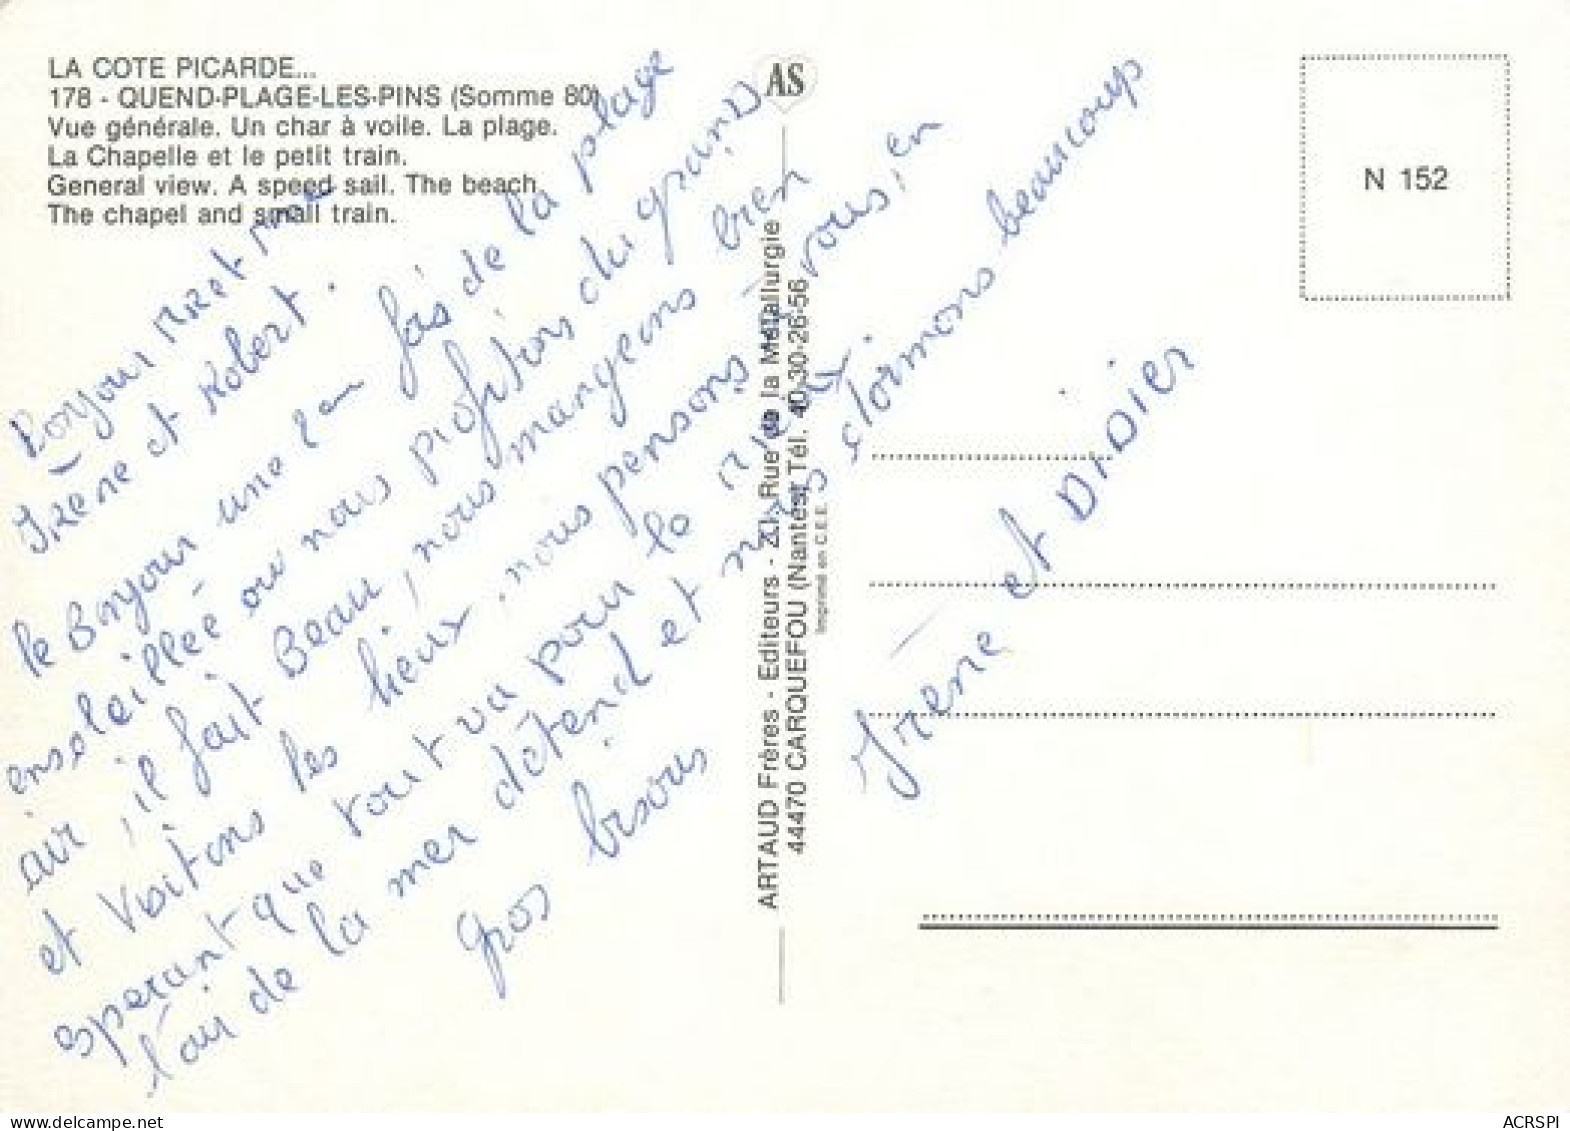 LA COTE PICARDE...
178 - QUEND-PLAGE-LES-PINS (Somme 80)
Vue générale. Un char à voile. La plage.
La Chapelle et le petit train.
General view. A speed sail. The beach.
The chapel and small train.
AS
N 152
Bonjour Mr et Mme
Irène et Robert.
le Bonjour une fois de la plage
ensoleillée ou nous profitons du grand
air, il fait Beau, nous mangeons bien
et visitons les lieux, nous pensons à vous, en
esperant que tout va pour le mieux.
l'air de la mer détend et nous dormons beaucoup
gros bisous
Irène et Didier
ARTAUD Frères - Editeurs - ZI, Rue de la Métallurgie
44470 CARQUEFOU (Nantes) Tél. 40-30-26-56
Imprimé en C.E.E.
www.delcampe.net
ACRSPI